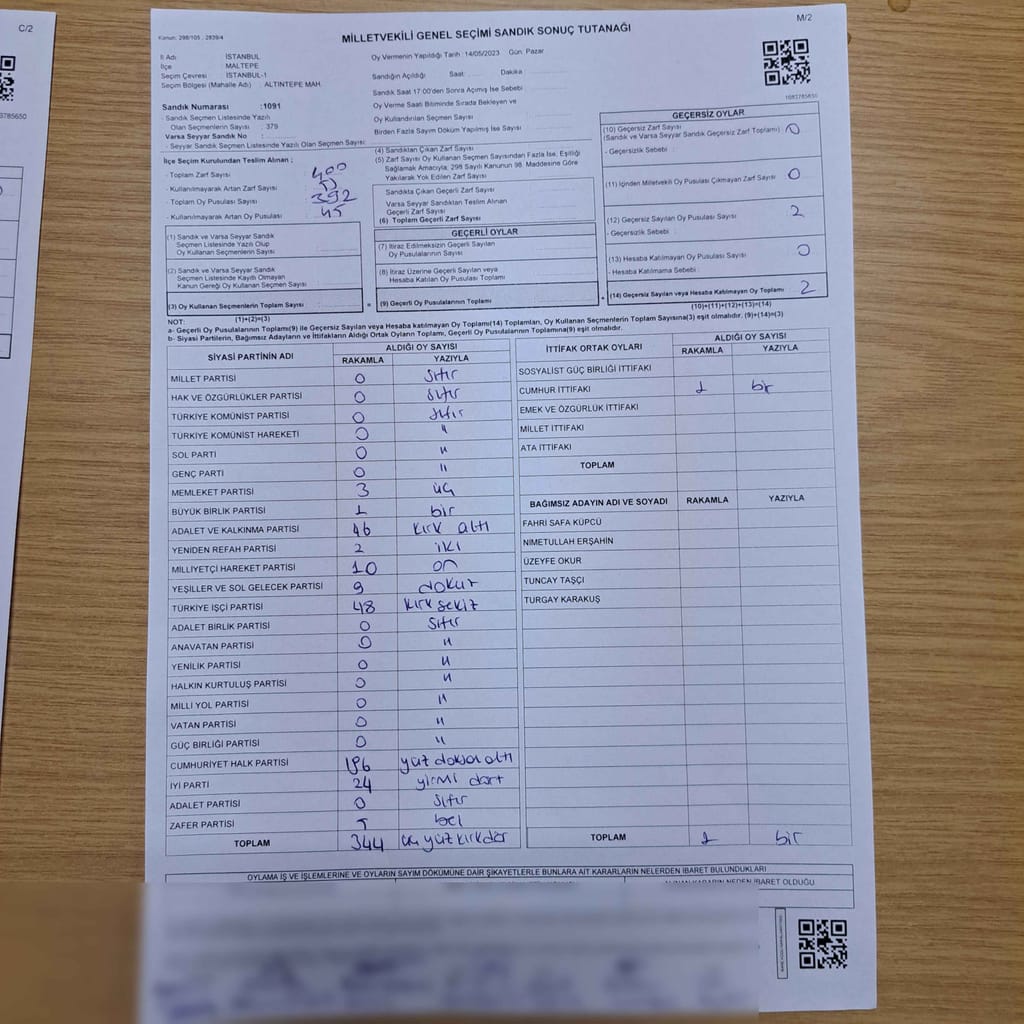 C/2
3785650
M/2
Kanun: 298/105 , 2839/4
MİLLETVEKİLİ GENEL SEÇİMİ SANDIK SONUÇ TUTANAĞI
1083785650
İl Adı İSTANBUL
İlçe MALTEPE
Seçim Çevresi İSTANBUL-1
Seçim Bölgesi (Mahalle Adı) ALTINTEPE MAH.
Sandık Numarası :1091
- Sandık Seçmen Listesinde Yazılı
Olan Seçmenlerin Sayısı : 379
Varsa Seyyar Sandık No :
- Seyyar Sandık Seçmen Listesinde Yazılı Olan Seçmen Sayısı:
İlçe Seçim Kurulundan Teslim Alınan ;
- Toplam Zarf Sayısı 400
- Kullanılmayarak Artan Zarf Sayısı
- Toplam Oy Pusulası Sayısı 392
- Kullanılmayarak Artan Oy Pusulası 45
(1) Sandık ve Varsa Seyyar Sandık
Seçmen Listesinde Yazılı Olup
Oy Kullanan Seçmenlerin Sayısı
(2) Sandık ve Varsa Seyyar Sandık
Seçmen Listesinde Kayıtlı Olmayan
Kanun Gereği Oy Kullanan Seçmen Sayısı
(3) Oy Kullanan Seçmenlerin Toplam Sayısı =
(1)+(2)=(3)
Oy Vermenin Yapıldığı Tarih :14/05/2023 Gün: Pazar
Sandığın Açıldığı Saat: Dakika
Sandık Saat 17:00'den Sonra Açımış İse Sebebi
Oy Verme Saati Bitiminde Sırada Bekleyen ve
Oy Kullandırılan Seçmen Sayısı
Birden Fazla Sayım Döküm Yapılmış İse Sayısı
(4) Sandıktan Çıkan Zarf Sayısı
(5) Zarf Sayısı Oy Kullanan Seçmen Sayısından Fazla İse, Eşitliği
Sağlamak Amacıyla; 298 Sayılı Kanunun 98. Maddesine Göre
Yakılarak Yok Edilen Zarf Sayısı
Sandıkta Çıkan Geçerli Zarf Sayısı
Varsa Seyyar Sandıktan Teslim Alınan
Geçerli Zarf Sayısı
(6) Toplam Geçerli Zarf Sayısı
GEÇERLİ OYLAR
(7) İtiraz Edilmeksizin Geçerli Sayılan
Oy Pusulalarının Sayısı
(8) İtiraz Üzerine Geçerli Sayılan veya
Hesaba Katılan Oy Pusulası Toplamı
(9) Geçerli Oy Pusulalarının Toplamı +
GEÇERSİZ OYLAR
(10) Geçersiz Zarf Sayısı
(Sandık ve Varsa Seyyar Sandık Geçersiz Zarf Toplamı) 0
- Geçersizlik Sebebi :
(11) İçinden Milletvekili Oy Pusulası Çıkmayan Zarf Sayısı 0
(12) Geçersiz Sayılan Oy Pusulası Sayısı 2
- Geçersizlik Sebebi :
(13) Hesaba Katılmayan Oy Pusulası Sayısı 0
- Hesaba Katılmama Sebebi :
(14) Geçersiz Sayılan veya Hesaba Katılmayan Oy Toplamı 2
(10)+(11)+(12)+(13)=(14)
NOT:
a- Geçerli Oy Pusulalarının Toplamı(9) ile Geçersiz Sayılan veya Hesaba katılmayan Oy Toplamı(14) Toplamları, Oy Kullanan Seçmenlerin Toplam Sayısına(3) eşit olmalıdır. (9)+(14)=(3)
b- Siyasi Partilerin, Bağımsız Adayların ve İttifakların Aldığı Ortak Oyların Toplamı, Geçerli Oy Pusulalarının Toplamına(9) eşit olmalıdır.
SİYASİ PARTİNİN ADI ALDIĞI OY SAYISI
RAKAMLA YAZIYLA
MİLLET PARTİSİ 0 sıfır
HAK VE ÖZGÜRLÜKLER PARTİSİ 0 sıfır
TÜRKİYE KOMÜNİST PARTİSİ 0 sıfır
TÜRKİYE KOMÜNİST HAREKETİ 0 "
SOL PARTİ 0 "
GENÇ PARTİ 0 "
MEMLEKET PARTİSİ 3 üç
BÜYÜK BİRLİK PARTİSİ 1 bir
ADALET VE KALKINMA PARTİSİ 46 kırk altı
YENİDEN REFAH PARTİSİ 2 iki
MİLLİYETÇİ HAREKET PARTİSİ 10 on
YEŞİLLER VE SOL GELECEK PARTİSİ 9 dokuz
TÜRKİYE İŞÇİ PARTİSİ 48 kırk sekiz
ADALET BİRLİK PARTİSİ 0 sıfır
ANAVATAN PARTİSİ 0 "
YENİLİK PARTİSİ 0 "
HALKIN KURTULUŞ PARTİSİ 0 "
MİLLİ YOL PARTİSİ 0 "
VATAN PARTİSİ 0 "
GÜÇ BİRLİĞİ PARTİSİ 0 "
CUMHURİYET HALK PARTİSİ 196 yüz doksan altı
İYİ PARTİ 24 yirmi dört
ADALET PARTİSİ 0 sıfır
ZAFER PARTİSİ 5 beş
TOPLAM 344 üç yüz kırk dör
İTTİFAK ORTAK OYLARI ALDIĞI OY SAYISI
RAKAMLA YAZIYLA
SOSYALİST GÜÇ BİRLİĞİ İTTİFAKI
CUMHUR İTTİFAKI 1 bir
EMEK VE ÖZGÜRLÜK İTTİFAKI
MİLLET İTTİFAKI
ATA İTTİFAKI
TOPLAM
BAĞIMSIZ ADAYIN ADI VE SOYADI RAKAMLA YAZIYLA
FAHRİ SAFA KÜPCÜ
NİMETULLAH ERŞAHİN
ÜZEYFE OKUR
TUNCAY TAŞÇI
TURGAY KARAKUŞ
TOPLAM 1 bir
OYLAMA İŞ VE İŞLEMLERİNE VE OYLARIN SAYIM DÖKÜMÜNE DAİR ŞİKAYETLERLE BUNLARA AİT KARARLARIN NELERDEN İBARET BULUNDUKLARI
ALINAN KARARIN NEDEN İBARET OLDUĞU